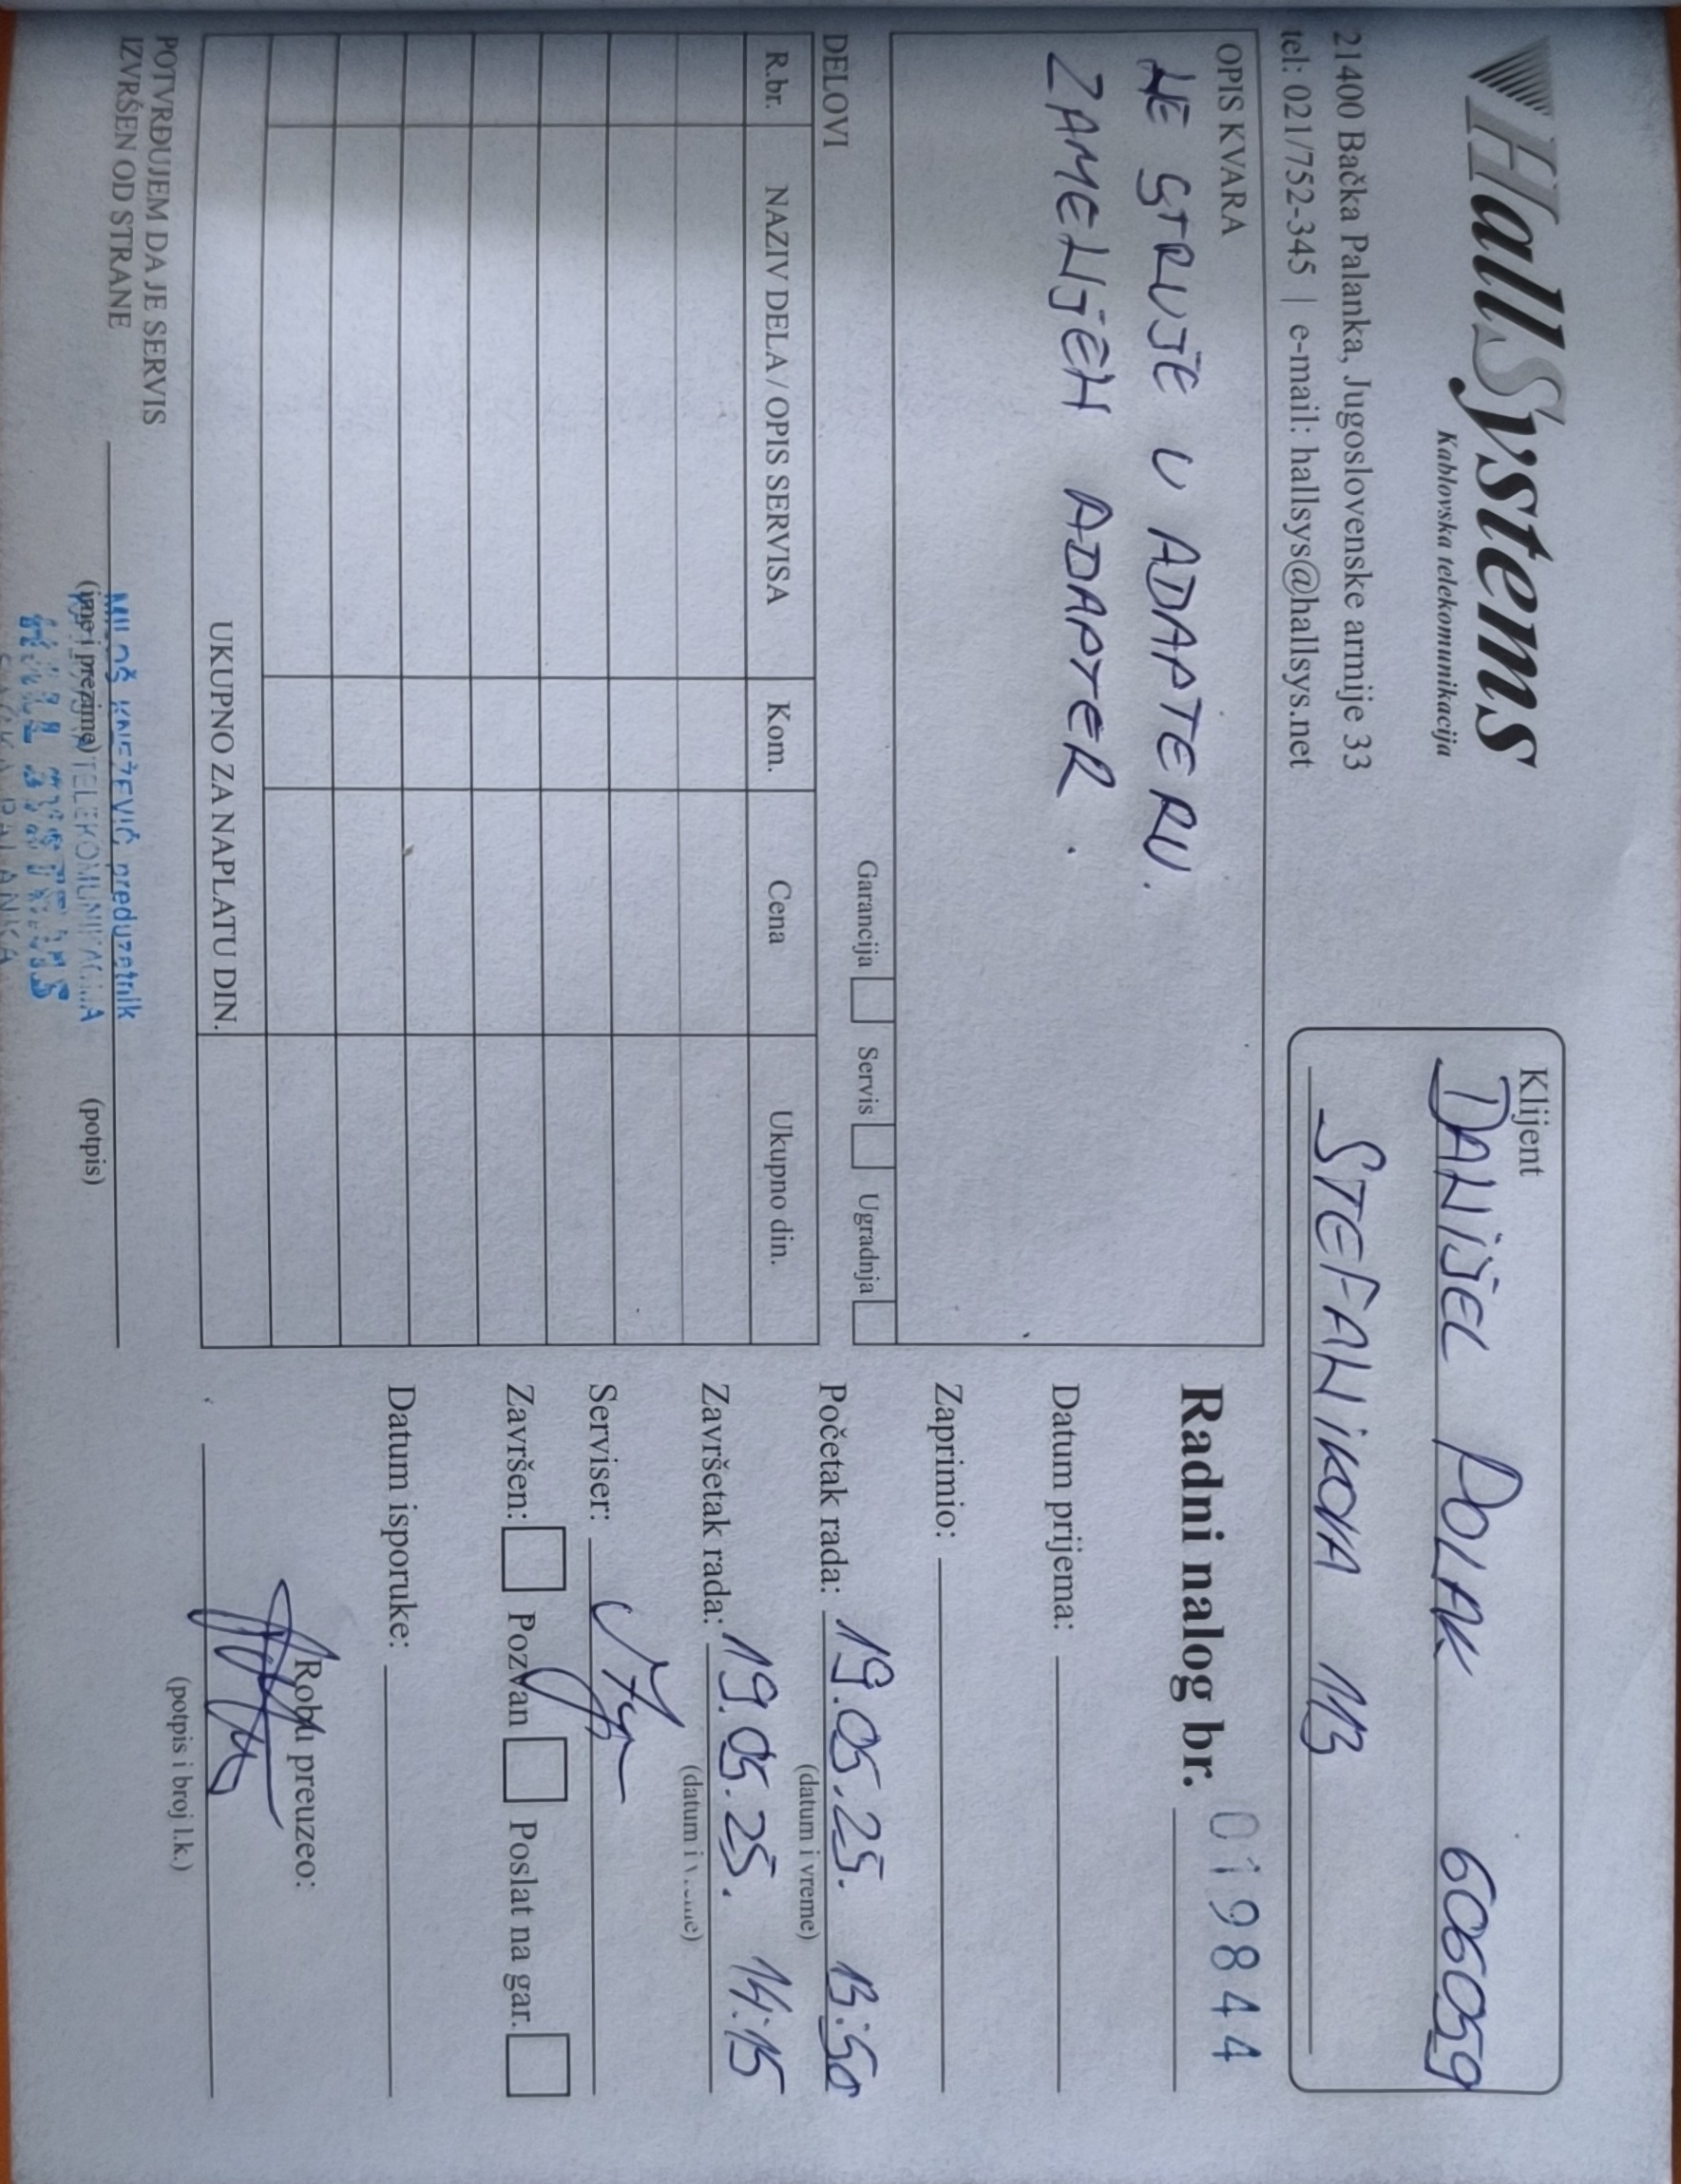 HallSystems
Kablovska telekomunikacija
21400 Bačka Palanka, Jugoslovenske armije 33
tel: 021/752-345 | e-mail: hallsys@hallsys.net
Klijent
DANIJEL POLAK 606059
STEFANIKOVA 113
OPIS KVARA
NE STRUJE U ADAPTERU.
ZAMENJEN ADAPTER.
Garancija Servis Ugradnja
DELOVI
R.br. NAZIV DELA / OPIS SERVISA Kom. Cena Ukupno din.
UKUPNO ZA NAPLATU DIN.
POTVRĐUJEM DA JE SERVIS
IZVRŠEN OD STRANE
(ime i prezime) (potpis)
MILOŠ KNEŽEVIĆ preduzetnik
TELEKOMUNIKACIJA
HALL SYSTEMS
BAČKA PALANKA
Radni nalog br. 019844
Datum prijema:
Zaprimio:
Početak rada: 19.05.25. 13:50
(datum i vreme)
Završetak rada: 19.05.25. 14:15
(datum i vreme)
Serviser:
Završen: Pozvan Poslat na gar.
Datum isporuke:
Robu preuzeo:
(potpis i broj l.k.)